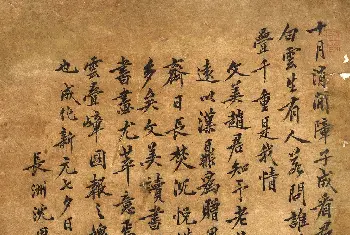 十月消閒障子成看君
白雲生有人若問誰
疊千重是我情
文美趙君知予老
遠以漢鼎為贈用
齋日長焚沉悅
多矣文美讀書
書畫尤萃意
雲疊嶂圖報之
也成化新元七夕日
長洲沈